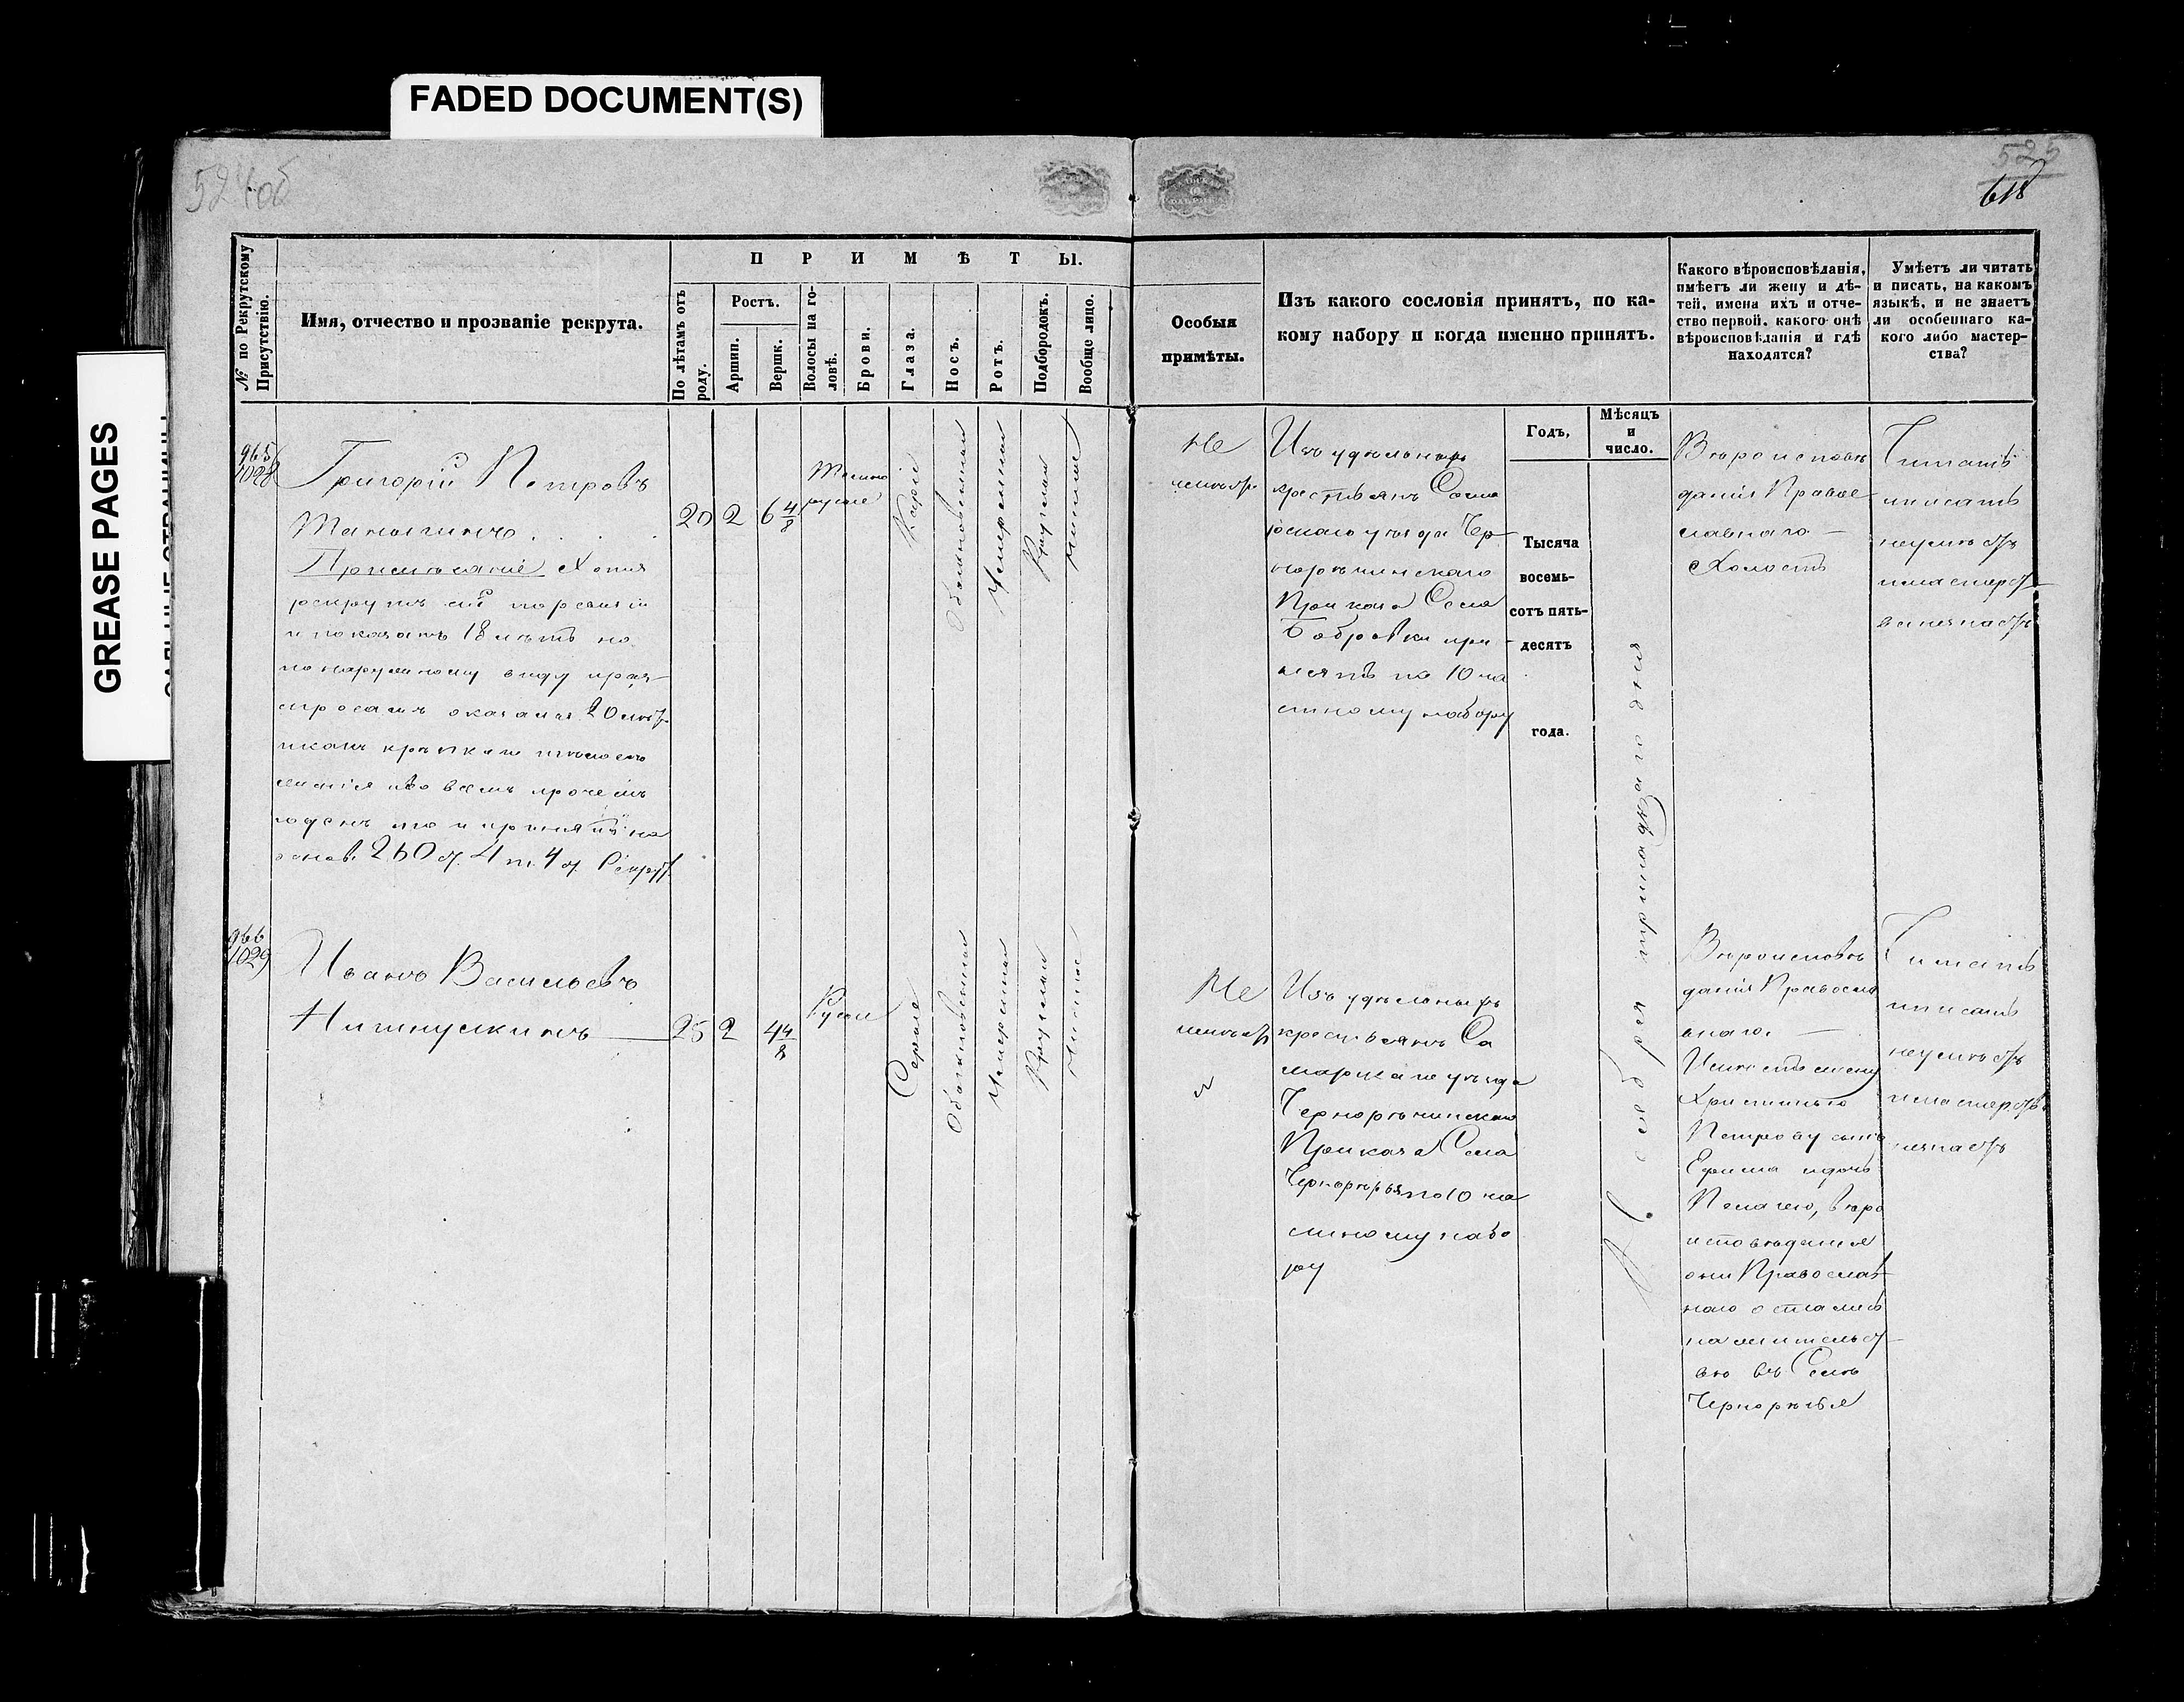 FADED DOCUMENT(S)
GREASE PAGES
524об
525
618
№ по Рекрутскому Присутствію.
Имя, отчество и прозваніе рекрута.
ПРИМѢТЫ.
По лѣтамъ отъ роду.
Ростъ.
Аршин.
Вершк.
Волосы на го-
ловѣ.
Брови.
Глаза.
Носъ.
Ротъ.
Подбородокъ.
Вообще лицо.
Особыя
примѣты.
Изъ какого сословія принятъ, по ка-
кому набору и когда именно принятъ.
Какого вѣроисповѣданія,
имѣетъ ли жену и дѣ-
тей, имена ихъ и отче-
ство первой, какого онѣ
вѣроисповѣданія и гдѣ
находятся?
Умѣетъ ли читать
и писать, на какомъ
языкѣ, и не знаетъ
ли особеннаго ка-
кого либо мастер-
ства?
Годъ,
Мѣсяцъ
и
число.
Тысяча
восемь-
сотъ пять-
десятъ
года.
965
1028
Григорій Петровъ
Примѣчаніе Хотя
рекрутъ сей
и показанъ 18 лѣтъ но
по наружному виду
оказался 20 лѣтъ
во всемъ прочемъ
годенъ то и принятъ на
основ. 260 ст. 4 т. 4 ст. Рекрут.
20
2
6 4/8
Темно
русые
Каріе
Обыкновенный
Умеренный
Круглый
Чистое
Не
имѣетъ
Изъ удѣльныхъ
крестьянъ Сама
рскаго уѣзда Чер
норѣчинскаго
Приказа Села
Бобровки при
нятъ по 10 ча
стному набору
ября тринадцатаго дня
Вѣроисповѣ
данія Право
славнаго —
Холостъ
Читать
и писать
неумѣетъ
и мастерст
ва незнаетъ
966
1029
Иванъ Васильевъ
25
2
4 4/8
Русые
Серые
Обыкновенный
Умеренный
Круглый
Чистое
Не
имѣетъ
Изъ удѣльныхъ
крестьянъ Са
марскаго уѣзда
Чернорѣчинскаго
Приказа Села
Чернорѣчья по 10 ча
стному набо
ру
Вѣроисповѣ
данія Правосла
внаго. —
Имѣетъ жену
Христинью
Петрову сына
Ефима и дочь
Пелагею, вѣро
исповѣданія
они Православ
наго остались
на жительст
вѣ въ Селѣ
Чернорѣчья
Читать
и писать
неумѣетъ
и мастерства
незнаетъ